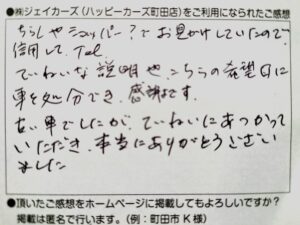 ●㈱ジェイカーズ(ハッピーカーズ町田店)をご利用になられたご感想
ちらしやショッパー?でお見かけしていたので
信用して、Tel
ていねいな説明や、こちらの希望日に
車を処分でき、感謝です。
古い車でしたが、ていねいにあつかって
いただき、本当にありがとうござい
ました
●頂いたご感想をホームページに掲載してもよろしいですか?
掲載は匿名で行います。(例:町田市K様)